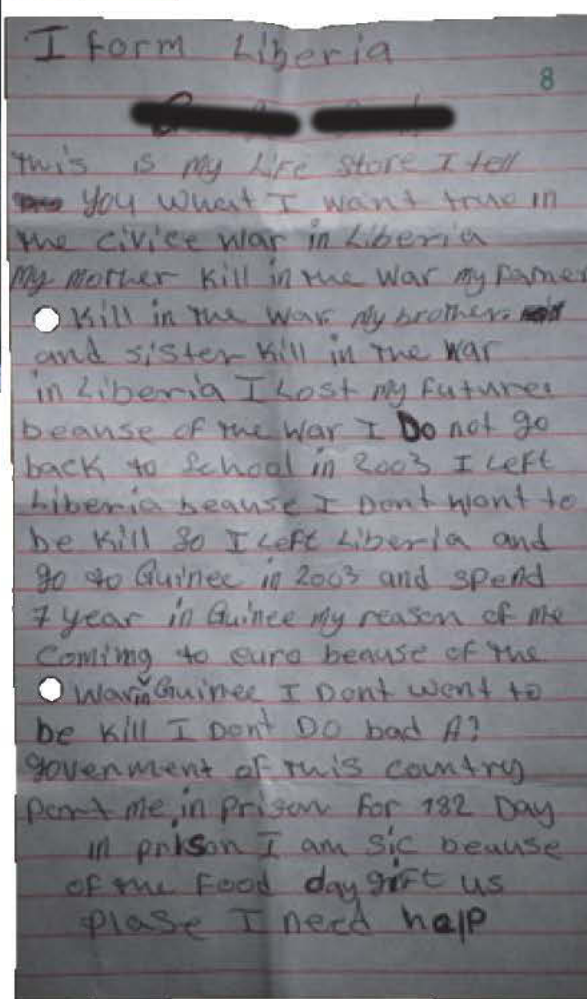 I form Liberia
8
This is my Life store I tell
you wheat I want true in
the civice war in Liberia
My mother kill in the war my
kill in the war my brother
and sister kill in the war
in Liberia I Lost my future
beause of the war I Do not go
back to School in 2003 I Left
Liberia beause I Dont wont to
be kill so I Left Liberia and
go to Guinee in 2003 and spend
7 year in Guinee my reason of me
coming to euro beause of the
war in Guinee I Dont went to
be kill I Dont DO bad A?
govenment of this country
me in prison for 182 Day
in prison I am sic beause
of the food day gift us
plase I need help